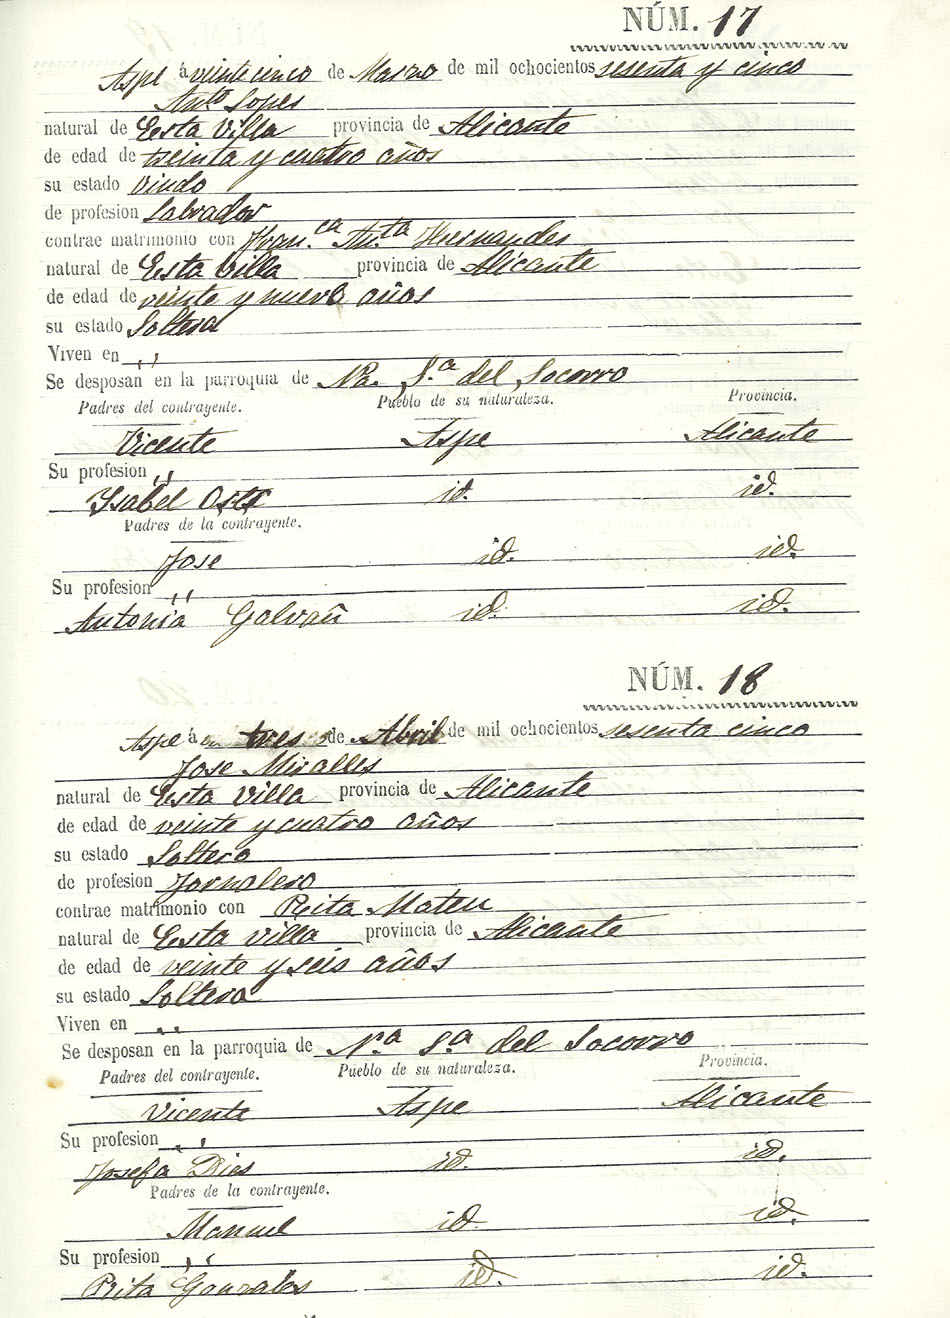 NÚM. 17
Aspe á veinte cinco de Marzo de mil ochocientos sesenta y cinco
Ant.o Lopes
natural de Esta Villa provincia de Alicante
de edad de treinta y cuatro años
su estado Viudo
de profesion Labrador
contrae matrimonio con Fran.ca Ant.ta Hernandes
natural de Esta Villa provincia de Alicante
de edad de veinte y nueve años
su estado Soltera
Viven en ,,
Se desposan en la parroquia de Na. S.a del Socorro
Padres del contrayente. Pueblo de su naturaleza. Provincia.
Vicente Aspe Alicante
Su profesion ,,
Ysabel id. id.
Padres de la contrayente.
Jose id. id.
Su profesion ,,
Antonia Galvañ id. id.
NÚM. 18
Aspe á tres de Abril de mil ochocientos sesenta cinco
Jose Miralles
natural de Esta Villa provincia de Alicante
de edad de veinte y cuatro años
su estado Soltero
de profesion Jornalero
contrae matrimonio con Rita Mateu
natural de Esta Villa provincia de Alicante
de edad de veinte y seis años
su estado Soltera
Viven en ,,
Se desposan en la parroquia de N.a S.a del Socorro
Padres del contrayente. Pueblo de su naturaleza. Provincia.
Vicente Aspe Alicante
Su profesion ,,
Josefa Dies id. id.
Padres de la contrayente.
Manuel id. id.
Su profesion ,,
Rita Gonzales id. id.